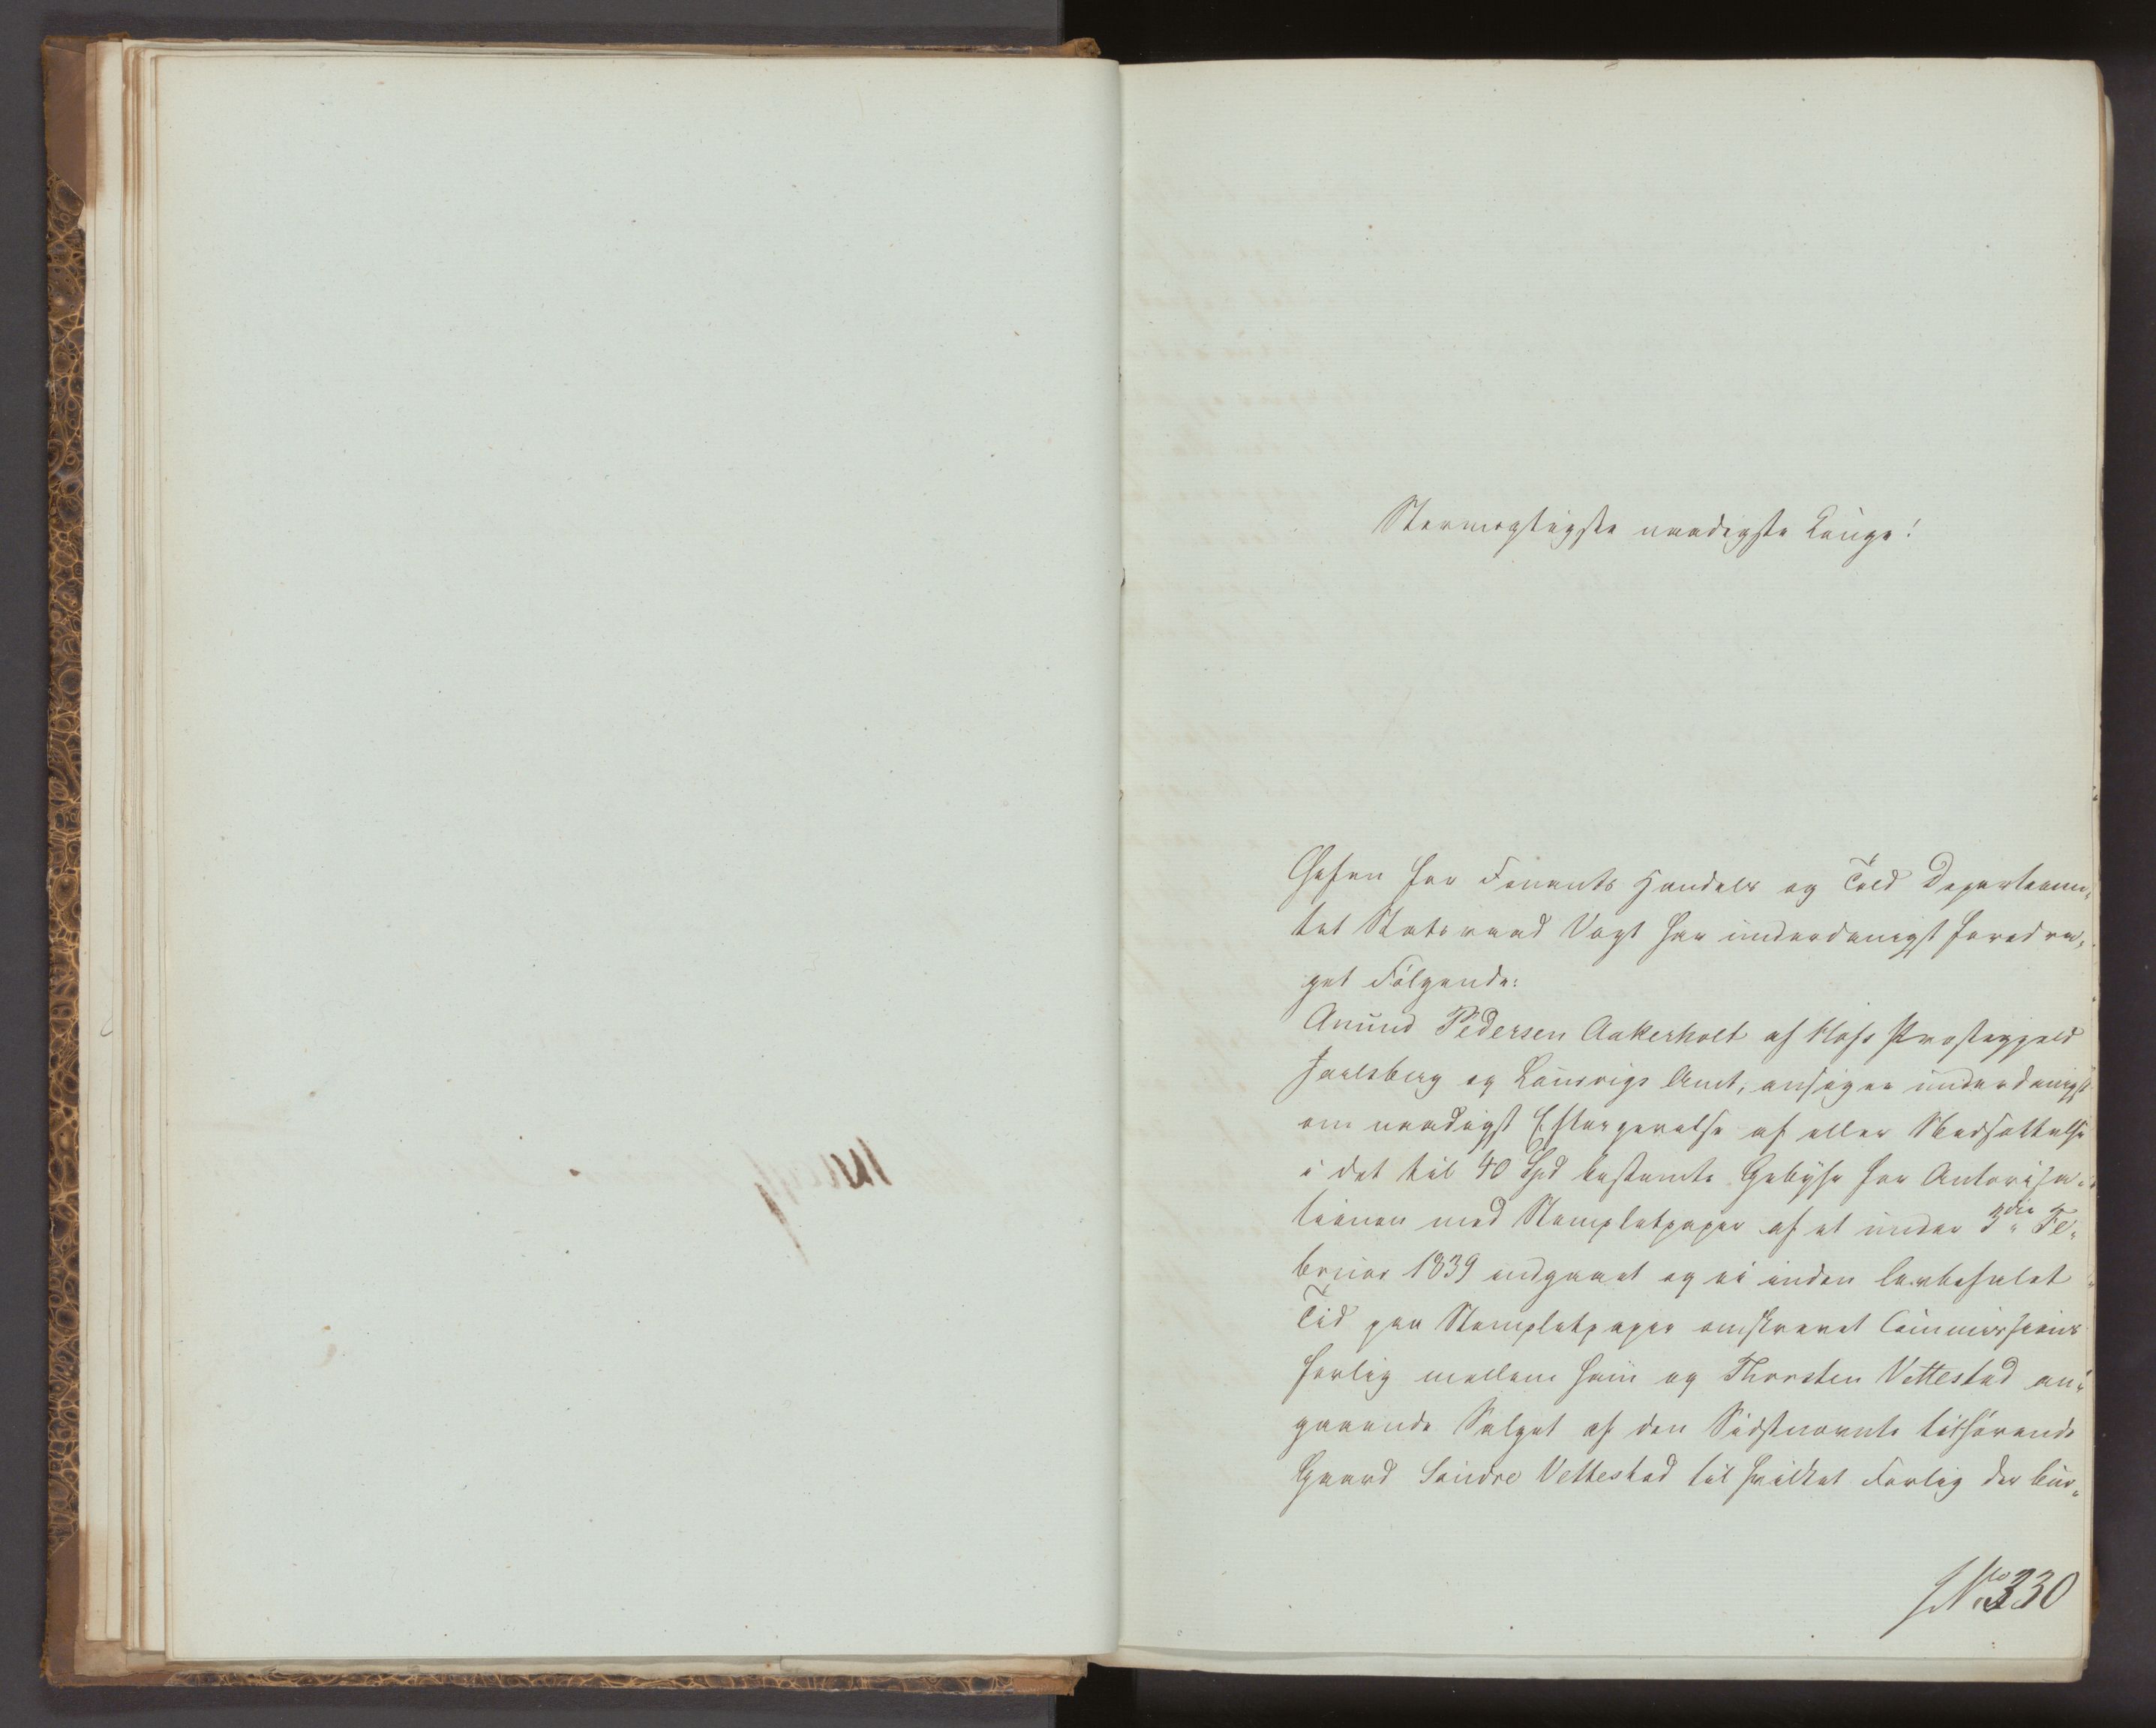 Stormægtigste naadigste Konge!
Chefen for Finants Handels og Told Departemen„
tet Statsraad Vogt har underdanigst foredra„
get Følgende:
Anund Pedersen Aakerholt af Hofs Præstegjeld
Jarlsberg og Laurvigs Amt, ansøger underdanigst
om naadigst Eftergivelse af eller Nedsættelse
i det til 40 Spd bestemte Gebyhr for Autorisa„
tionen med Stempletpapir af et under 3die Fe„
bruar 1839 indgaaet og ei inden lovbefalet
Tid paa Stempletpapir omskrevet Commissions
forlig mellem ham og Thorsten Vettestad an„
gaaende Salget af den Sidstnævnte tilhørende
Gaard Søndre Vettestad til hvilket Forlig der bur„
No 330